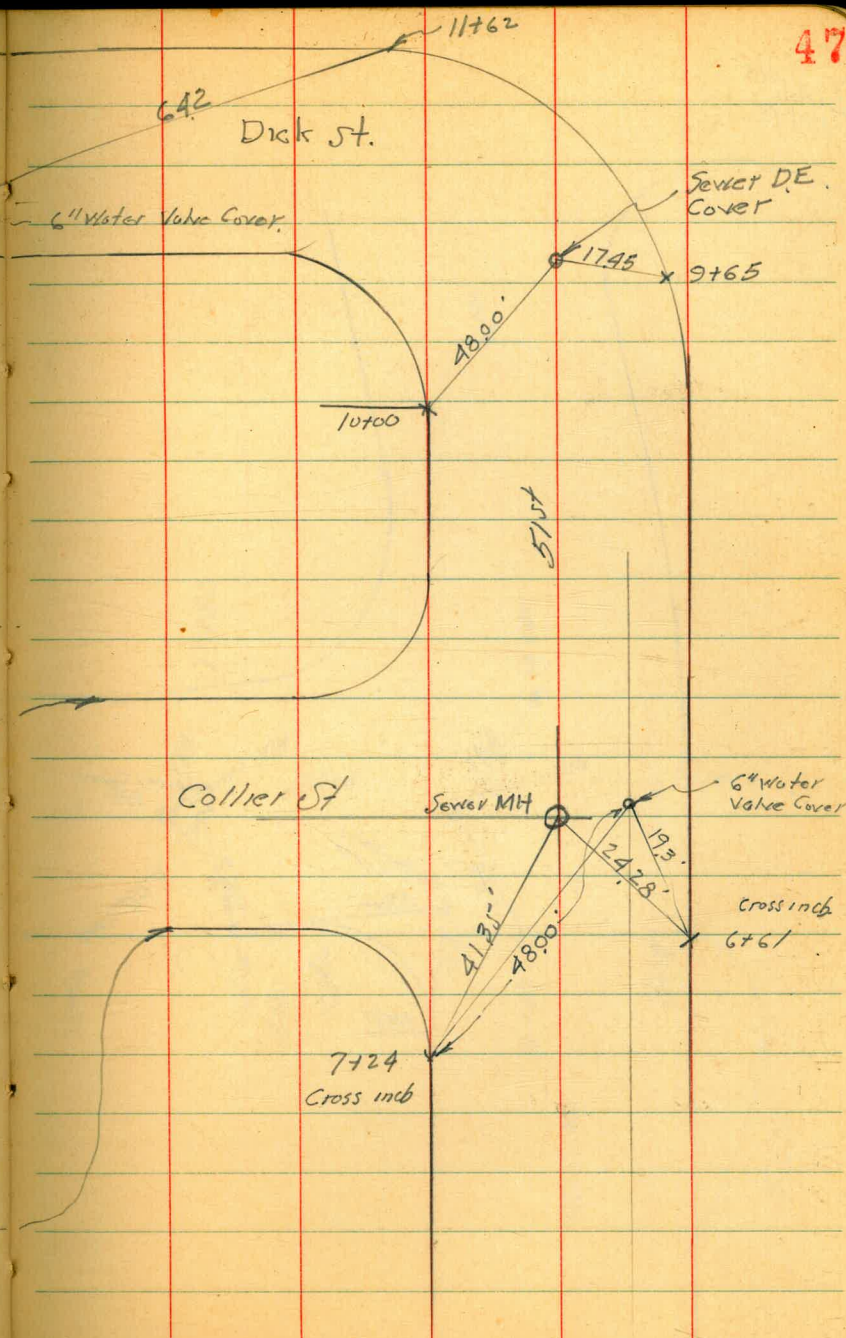 11+62
47
642
Dick St.
Sewer D.E.
Cover
6" Water Valve Cover.
17.45
9+65
48.00'
10+00
51st
Collier St
Sewer MH
6" Water
Valve Cover
19.3'
24.28'
Cross in cb
6+61
41.35'
48.00'
7+24
Cross in cb